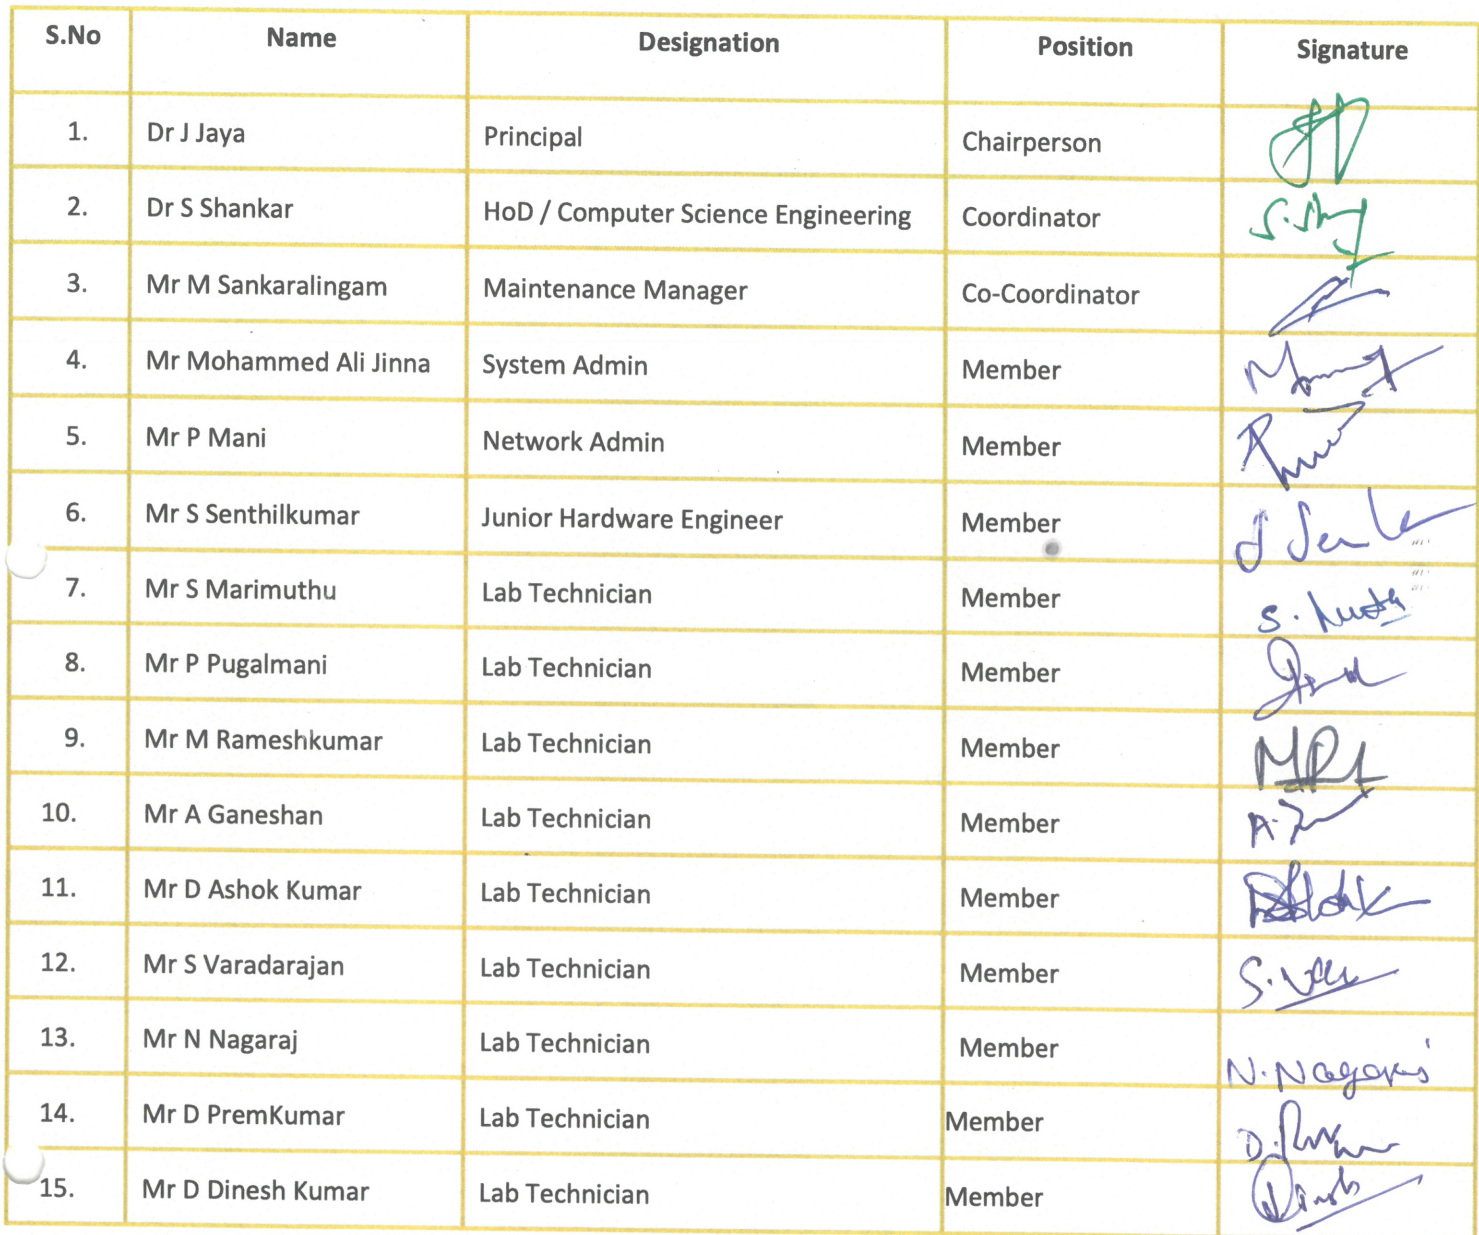 S.No Name Designation Position Signature
1. Dr J Jaya Principal Chairperson
2. Dr S Shankar HoD / Computer Science Engineering Coordinator
3. Mr M Sankaralingam Maintenance Manager Co-Coordinator
4. Mr Mohammed Ali Jinna System Admin Member
5. Mr P Mani Network Admin Member
6. Mr S Senthilkumar Junior Hardware Engineer Member
7. Mr S Marimuthu Lab Technician Member
8. Mr P Pugalmani Lab Technician Member
9. Mr M Rameshkumar Lab Technician Member
10. Mr A Ganeshan Lab Technician Member
11. Mr D Ashok Kumar Lab Technician Member
12. Mr S Varadarajan Lab Technician Member
13. Mr N Nagaraj Lab Technician Member N. Nagaraj
14. Mr D PremKumar Lab Technician Member
15. Mr D Dinesh Kumar Lab Technician Member